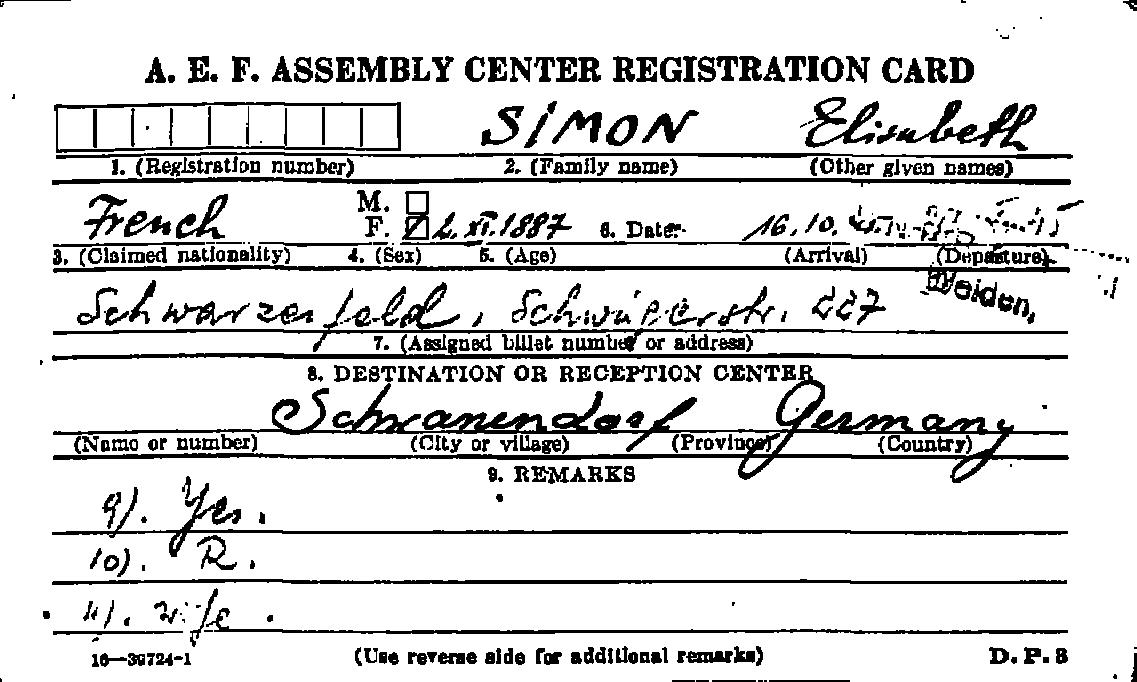 A. E. F. ASSEMBLY CENTER REGISTRATION CARD
SIMON Elisabeth
1. (Registration number) 2. (Family name) (Other given names)
French M. F. 2. XI. 1887 6. Date 16. 10.
3. (Claimed nationality) 4. (Sex) 5. (Age) (Arrival) (Departure)
Weiden,
Schwarzenfeld, 227
7. (Assigned billet number or address)
8. DESTINATION OR RECEPTION CENTER
Schwanendorf Germany
(Name or number) (City or village) (Province) (Country)
9. REMARKS
9). Yes.
10). R.
11). wife.
16—39724-1 (Use reverse side for additional remarks) D. P. 3